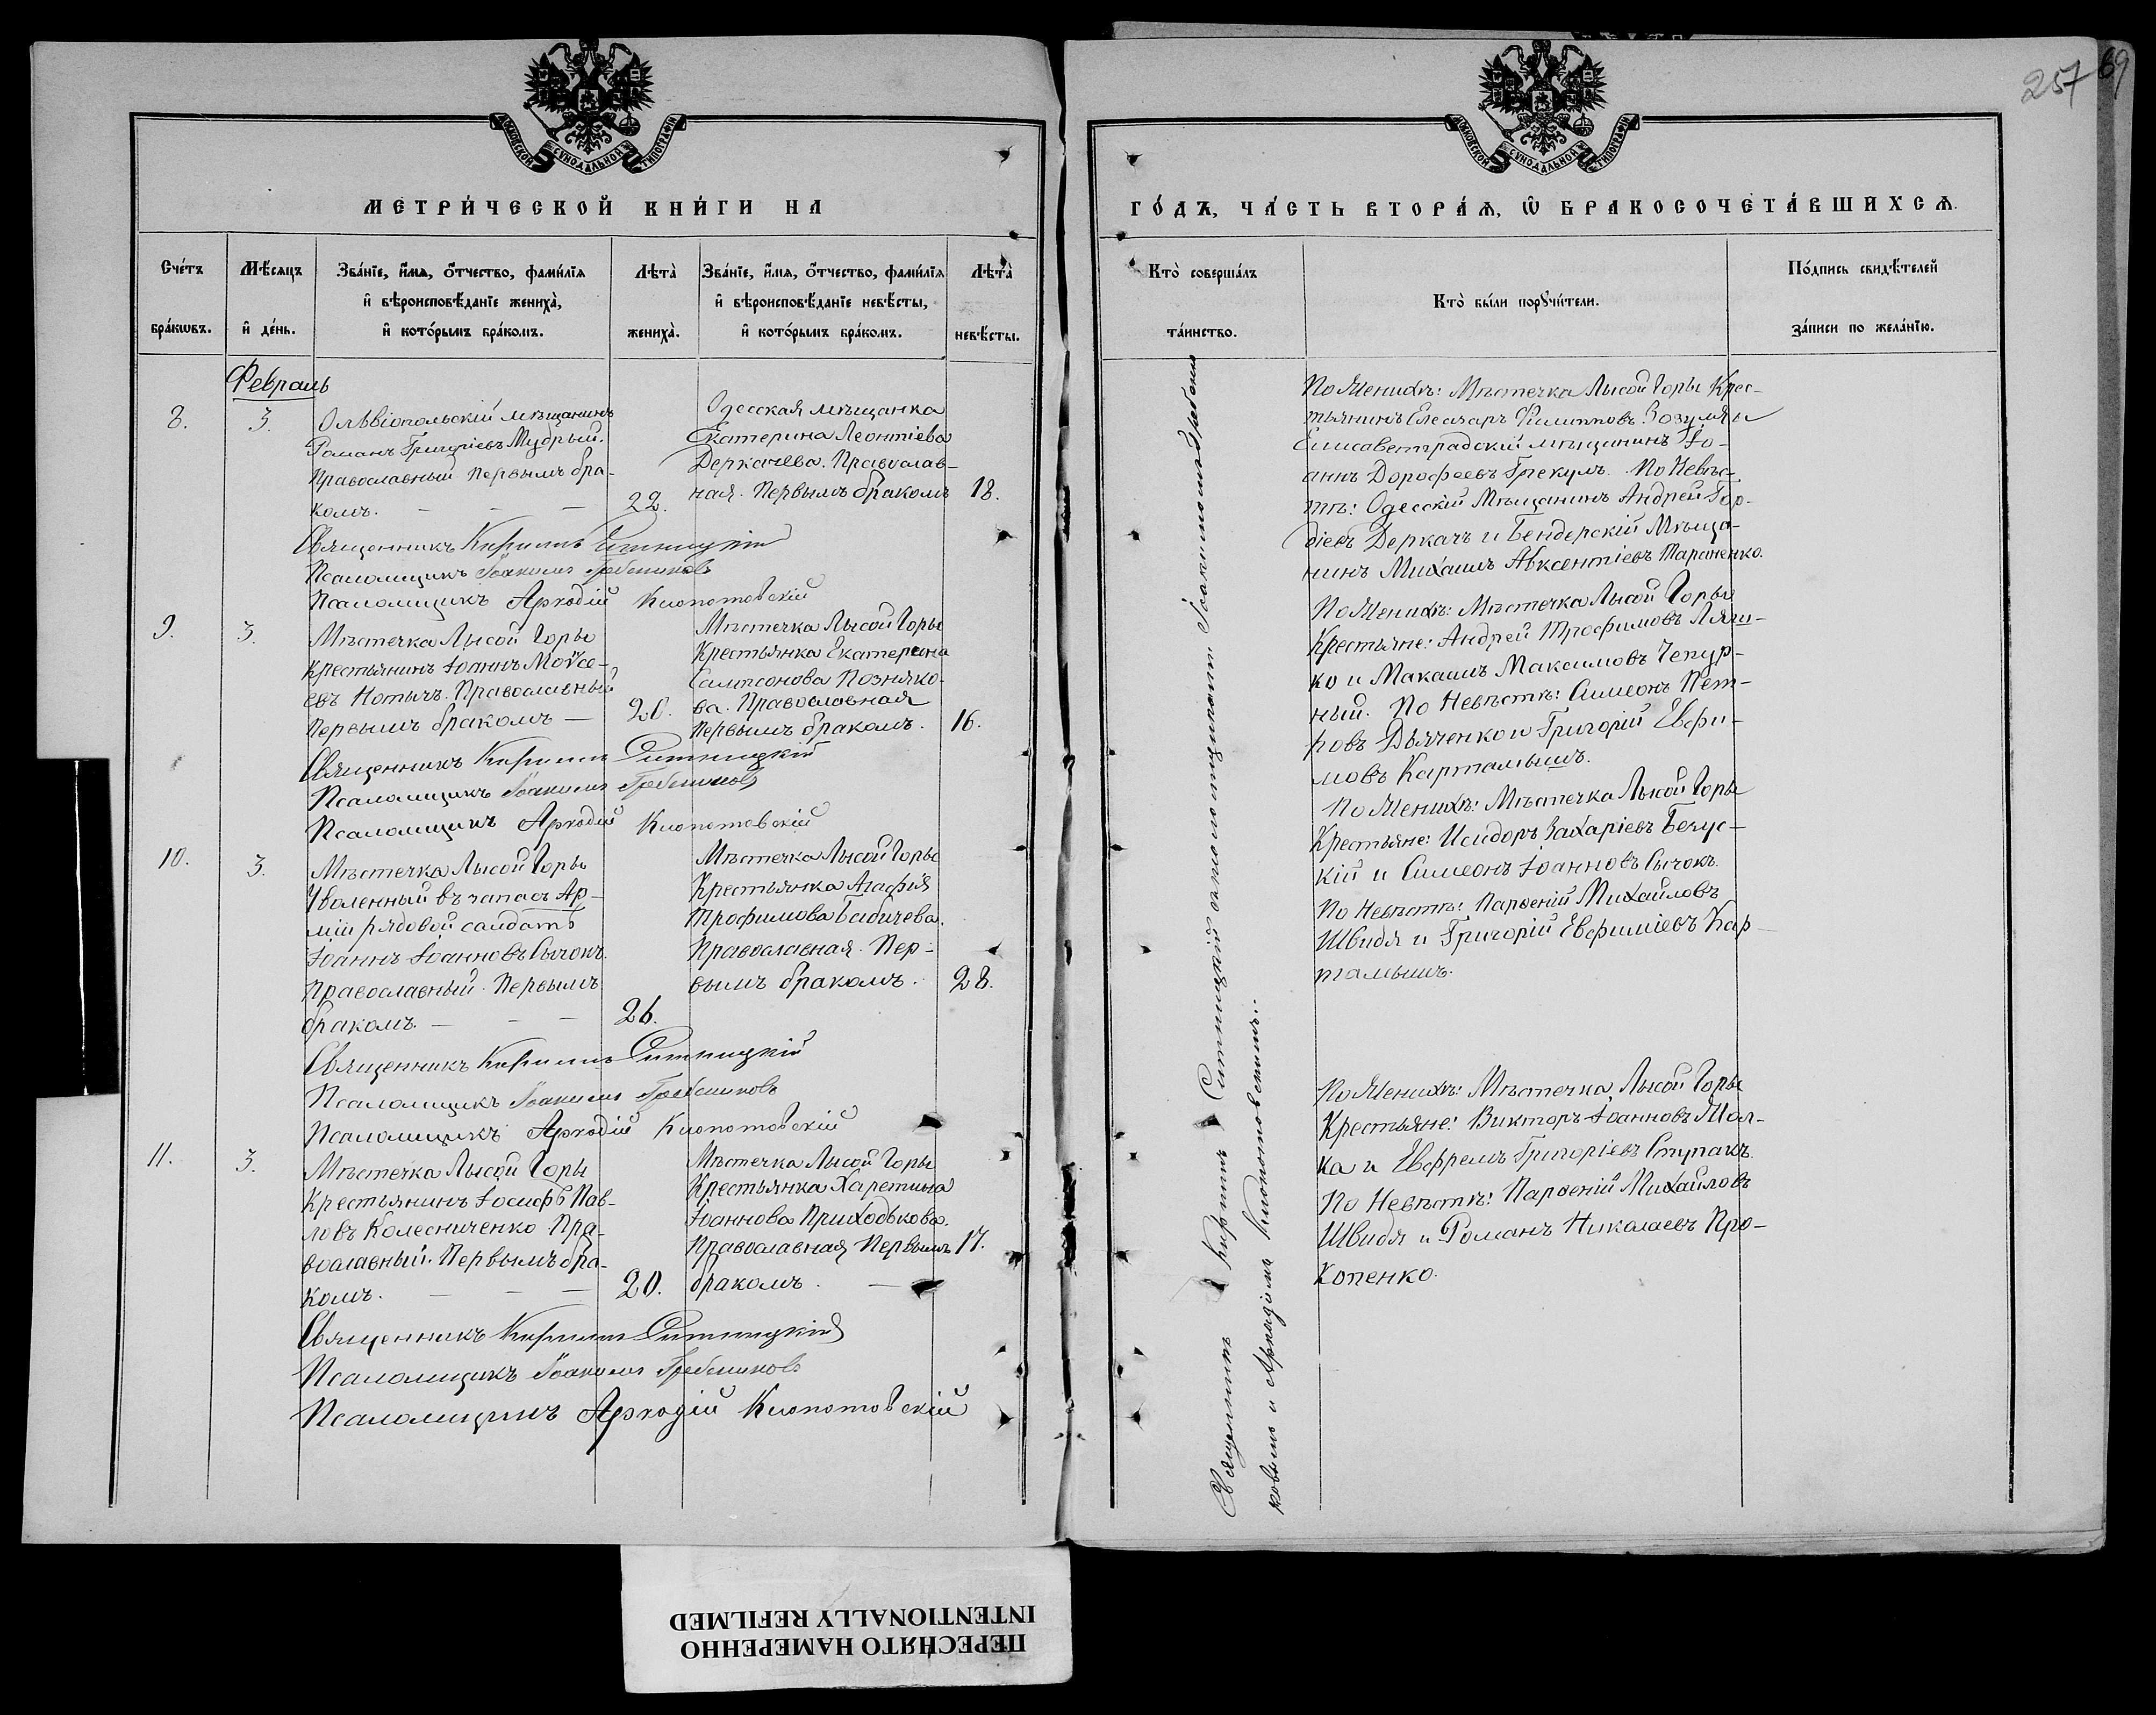 257
69
МОСКОВСКОЙ СУНОДАЛЬНОЙ ТИПОГРАФІИ
МОСКОВСКОЙ СУНОДАЛЬНОЙ ТИПОГРАФІИ
МЕТРИ́ЧЕСКОЙ КНИ́ГИ НА
ГО́ДЪ, ЧА́СТЬ ВТОРА́Ѧ, Ѽ БРАКОСОЧЕТА́ВШИХСѦ.
Сче́тъ
бра́кωвъ.
Мѣ́сяцъ
и҆ де́нь.
Зва́нїе, и҆́мѧ, ѻ҆́тчество, фами́лїѧ
и҆ вѣроисповѣ́данїе жениха̀,
и҆ кото́рымъ бра́комъ.
Лѣта̀
жениха̀.
Зва́нїе, и҆́мѧ, ѻ҆́тчество, фами́лїѧ
и҆ вѣроисповѣ́данїе невѣ́сты,
и҆ кото́рымъ бра́комъ.
Лѣта̀
невѣ́сты.
Кто̀ соверша́лъ
та́инство.
Кто̀ бы́ли порꙋчи́тели.
По́дпись свидѣ́телей
за́писи по жела́нїю.
Февраль
8.
3.
Ольвіопольскій мѣщанинъ
Романъ Григоріевъ Мудрый.
Православный первымъ бра-
комъ. — — —
22.
Одесская мѣщанка
Екатерина Леонтіева
Деркачева. Православ-
ная. Первымъ бракомъ
18.
Священникъ Кириллъ Ситницкій
Псаломщикъ Іоакимъ Гребениковъ
Псаломщикъ Аркадій Клопотовскій
9.
3.
Мѣстечка Лысой Горы
Крестьянинъ Іоаннъ Моѵсе-
евъ Нотычъ. Православный
Первымъ бракомъ —
20.
Мѣстечка Лысой Горы
Крестьянка Екатерина
Сампсонова Позняко-
ва. Православная
Первымъ бракомъ.
16.
Священникъ Кириллъ Ситницкій
Псаломщикъ Іоакимъ Гребениковъ
Псаломщикъ Аркадій Клопотовскій
10.
3.
Мѣстечка Лысой Горы
Уволенный въ запасъ Ар-
міи рядовой солдатъ
Іоаннъ Іоанновъ Сычокъ.
Православный. Первымъ
бракомъ. — — —
26.
Мѣстечка Лысой Горы
Крестьянка Агафія
Трофимова Бабичева.
Православная. Пер-
вымъ бракомъ.
28.
Священникъ Кириллъ Ситницкій
Псаломщикъ Іоакимъ Гребениковъ
Псаломщикъ Аркадій Клопотовскій
11.
3.
Мѣстечка Лысой Горы
Крестьянинъ Іосифъ Пав-
ловъ Колесниченко. Пра-
вославный. Первымъ бра-
комъ. — — —
20.
Мѣстечка Лысой Горы
Крестьянка Харетина
Іоаннова Приходькова.
Православная Первымъ
бракомъ. —
17.
Священникъ Кириллъ Ситницкій
Псаломщикъ Іоакимъ Гребениковъ
Псаломщикъ Аркадій Клопотовскій
Священникъ Кириллъ Ситницкій съ псаломщиками Іоакимомъ Гребени
ковымъ и Аркадіемъ Клопотовскимъ..
По Женихѣ: Мѣстечка Лысой Горы Крес-
тьянинъ Елеазаръ Филипповъ Зозуля и
Елисаветградскій мѣщанинъ Іо-
аннъ Дорофеевъ Грекулъ. По Невѣс-
тѣ: Одесскій Мѣщанинъ Андрей Гор-
діевъ Деркачъ и Бендерскій Мѣща-
нинъ Михаилъ Авксентіевъ Тараненко.
По Женихѣ: Мѣстечка Лысой Горы
Крестьяне: Андрей Трофимовъ Ляш-
ко и Макаимъ Максимовъ Чепур-
ный. По Невѣстѣ: Симеонъ Пет-
ровъ Дьяченко и Григорій Евфи-
мовъ Карталышъ.
По Женихѣ: Мѣстечка Лысой Горы
Крестьяне: Исидоръ Захаріевъ Бечус-
кій и Симеонъ Іоанновъ Сычокъ.
По Невѣстѣ: Парѳеній Михайловъ
Швидя и Григорій Евфиміевъ Кар
талышъ.
По Женихѣ: Мѣстечка Лысой Горы
Крестьяне: Викторъ Іоанновъ Мол-
ка и Евфремъ Григоріевъ Ступакъ.
По Невѣстѣ: Парѳеній Михайловъ
Швидя и Романъ Николаевъ Про-
копенко.
ПЕРЕСНЯТО НАМЕРЕННО
INTENTIONALLY REFILMED